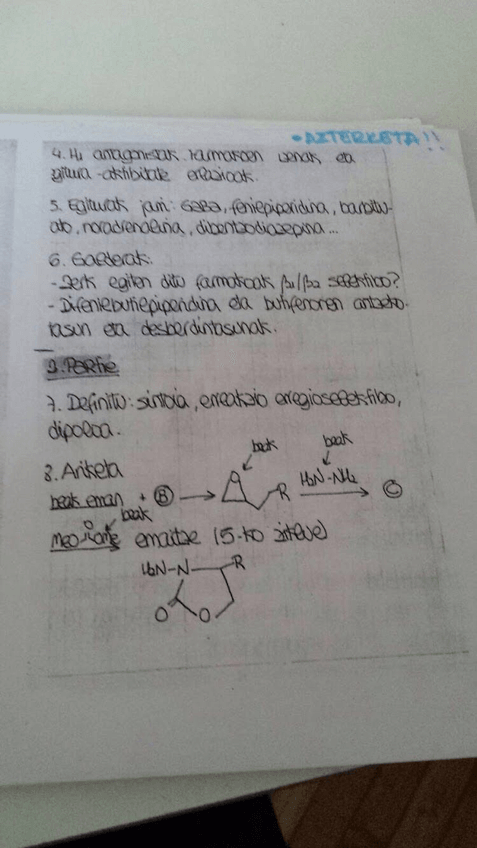 • AZTERKETA !!
4. H₁ antagonistak. Farmakoen izenak eta
egitura-aktibitate erlazioak.
5. Egiturak jarri: GABA, fenilpiperidina, barbitu-
ato, noradrenalina, dibentzodiazepina...
6. Galderak.
- Zerk egiten ditu farmakoak β₁/β₂ selektibo?
- Difenilbutilpiperidina eta butifenoren antzeko-
tasun eta desberdintasunak.
2. Partie
7. Definitu: sintoia, erreakzio erregioselektibo,
dipoloa.
8. Ariketa
beak eman + B → R H₂N-NH₂ → C
beak beak
MeO OMe beak emaitza (5-ko
H₂N-N R
O O